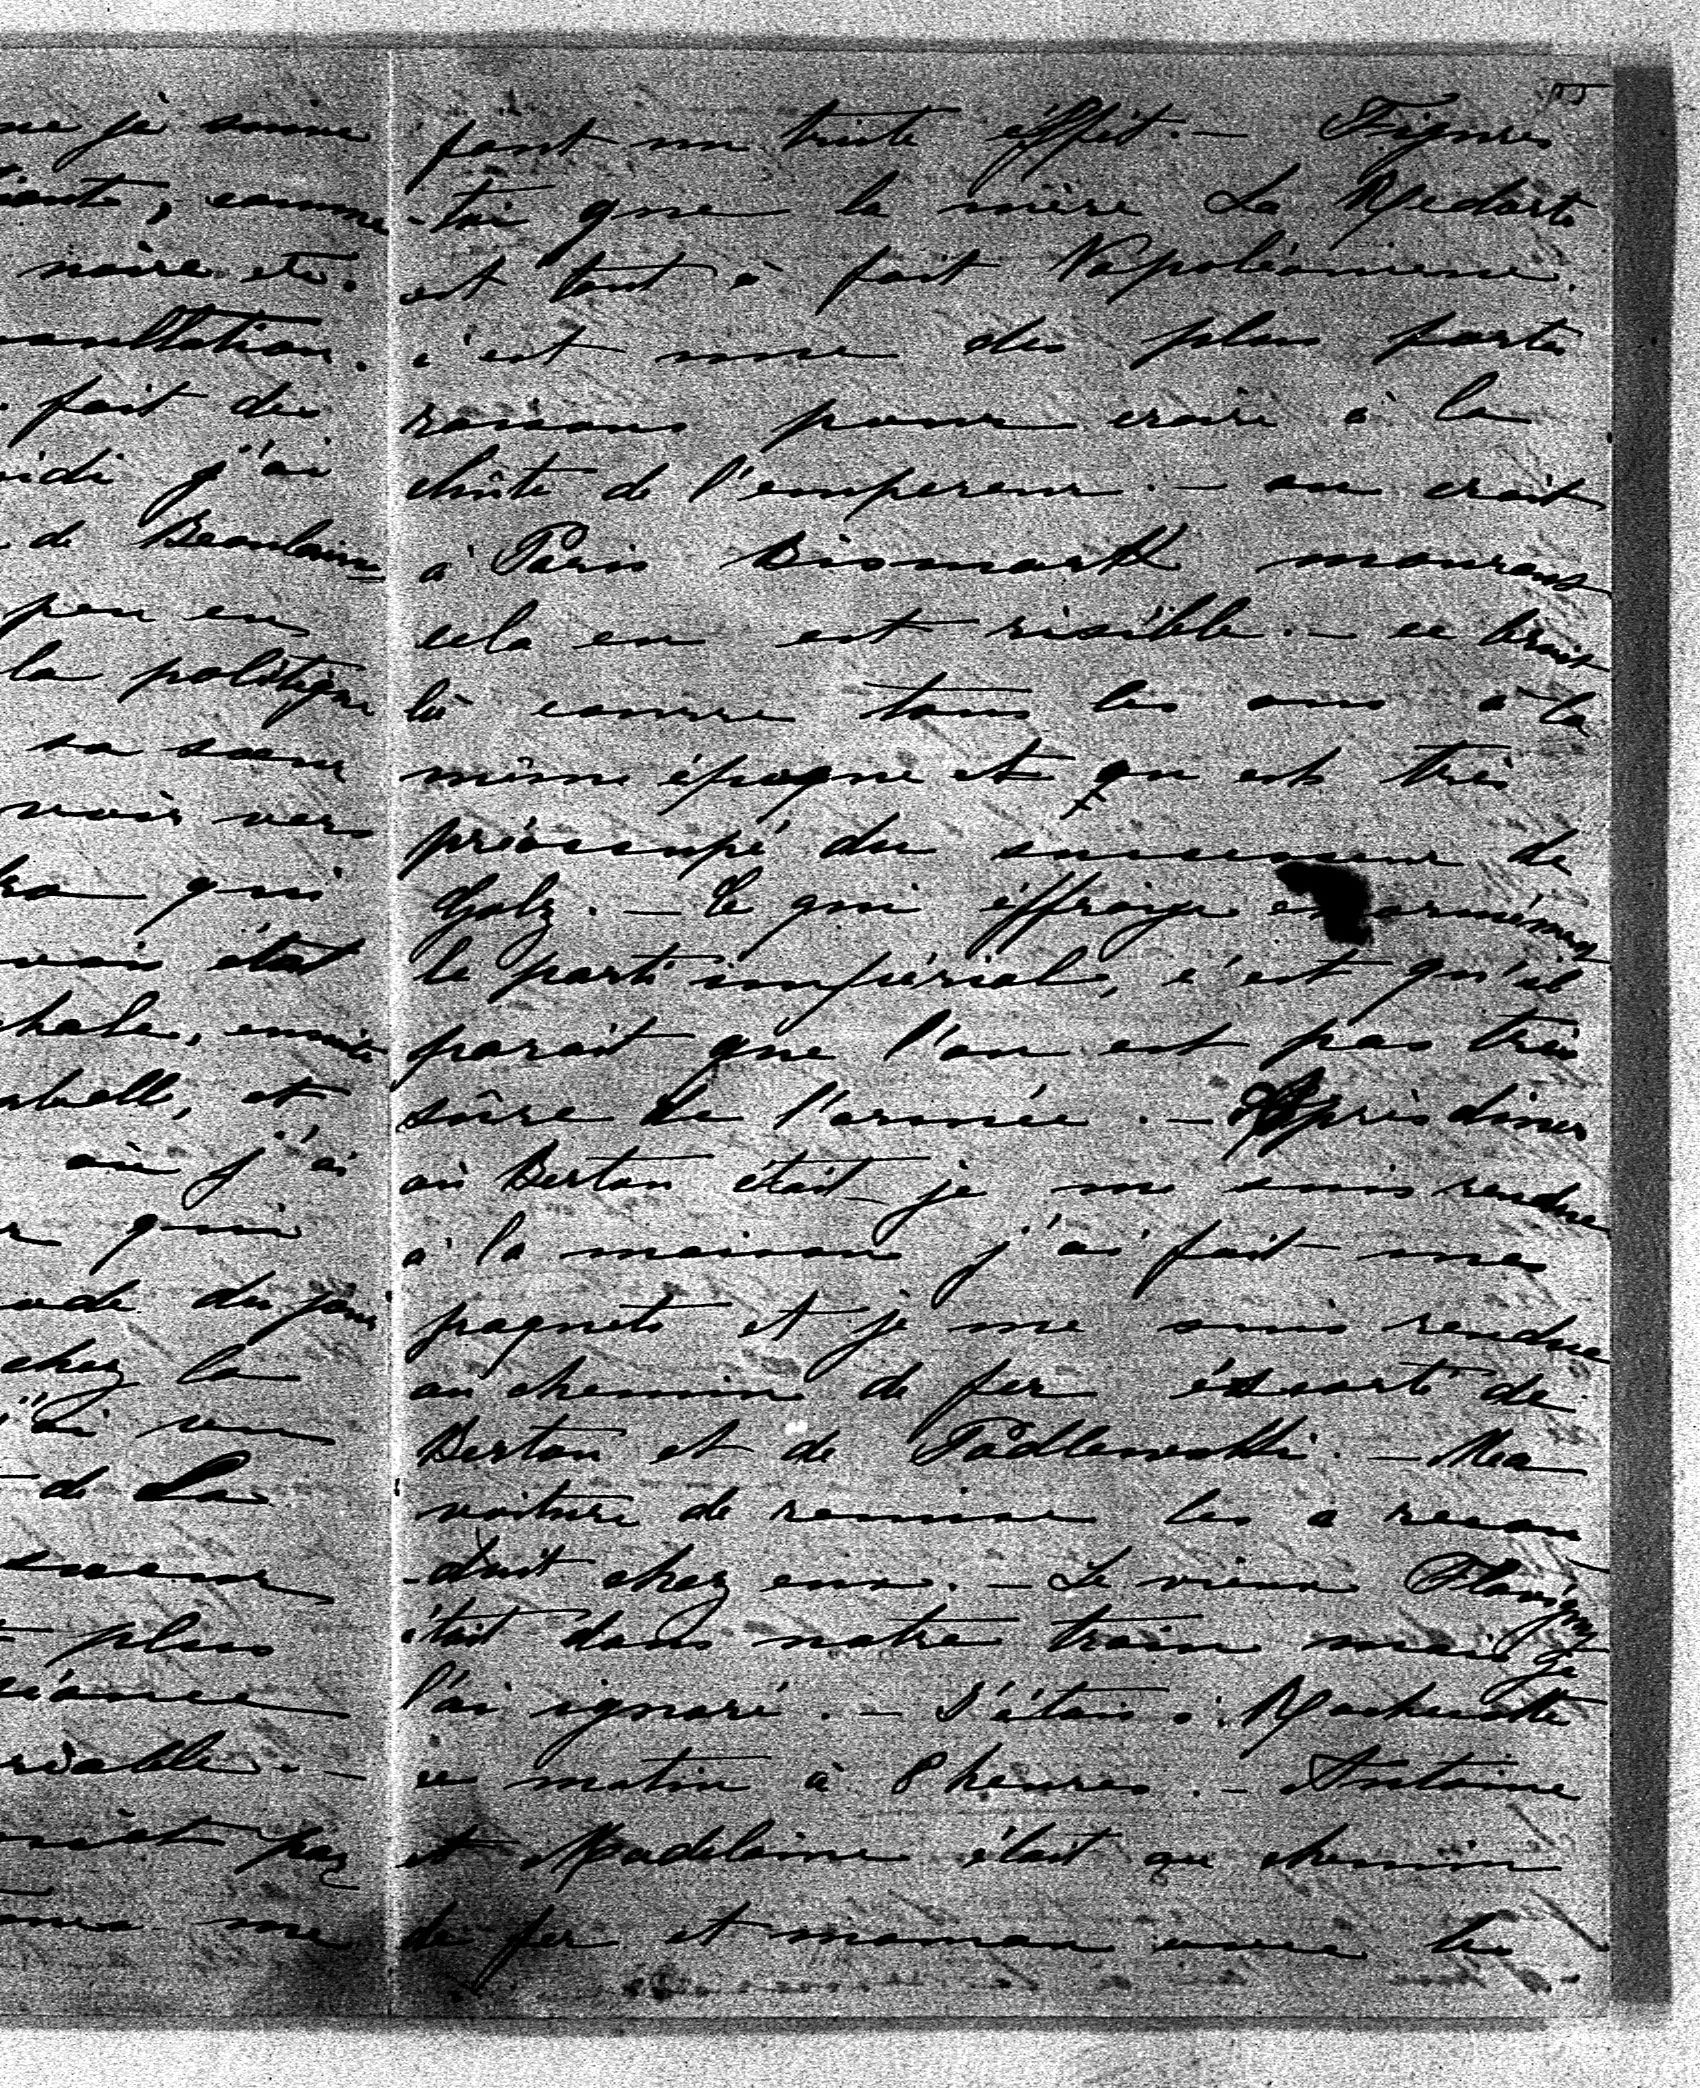 me je
comme
noire etc.
consultation.
fait des
midi j'ai
de Beaulain=
peu en
la politique
sa sœur
voir vers
qui
état
ensuite
et
où j'ai
qui
du jour
chez la
j'ai vu
de La
plus
séance
pas
me
font un triste éffet. — Figures
-toi que la mère La Redorte
est tout à fait Napoléonienne.
c'est une des plus fortes
raisons pour croire à la
chûte de l'empereur. — on croit
à Paris Bismark mourant
cela en est risible. — ce bruit
là courre tous les ans à la
même époque et qu est très
préoccupé du successeur de
Golz. — Ce qui éffraye enormémen
le parti impérial, c'est qu'il
parait que l'on est pas très
sûre de l'armée. — Après diner
où Berton était je me suis rendue
à la maison j'ai fait mes
paquets et je me suis rendue
au chemin de fer éscorté de
Berton et de Padlewski. — Ma
voiture de remise les a recon
-duit chez eux. — Le vieux Flavigny
était dans notre train mais je
l'ai ignoré. — J'étais à Rochecotte
ce matin à 8 heures. — Antoine
et Madelaine était au chemin
de fer et maman avec les